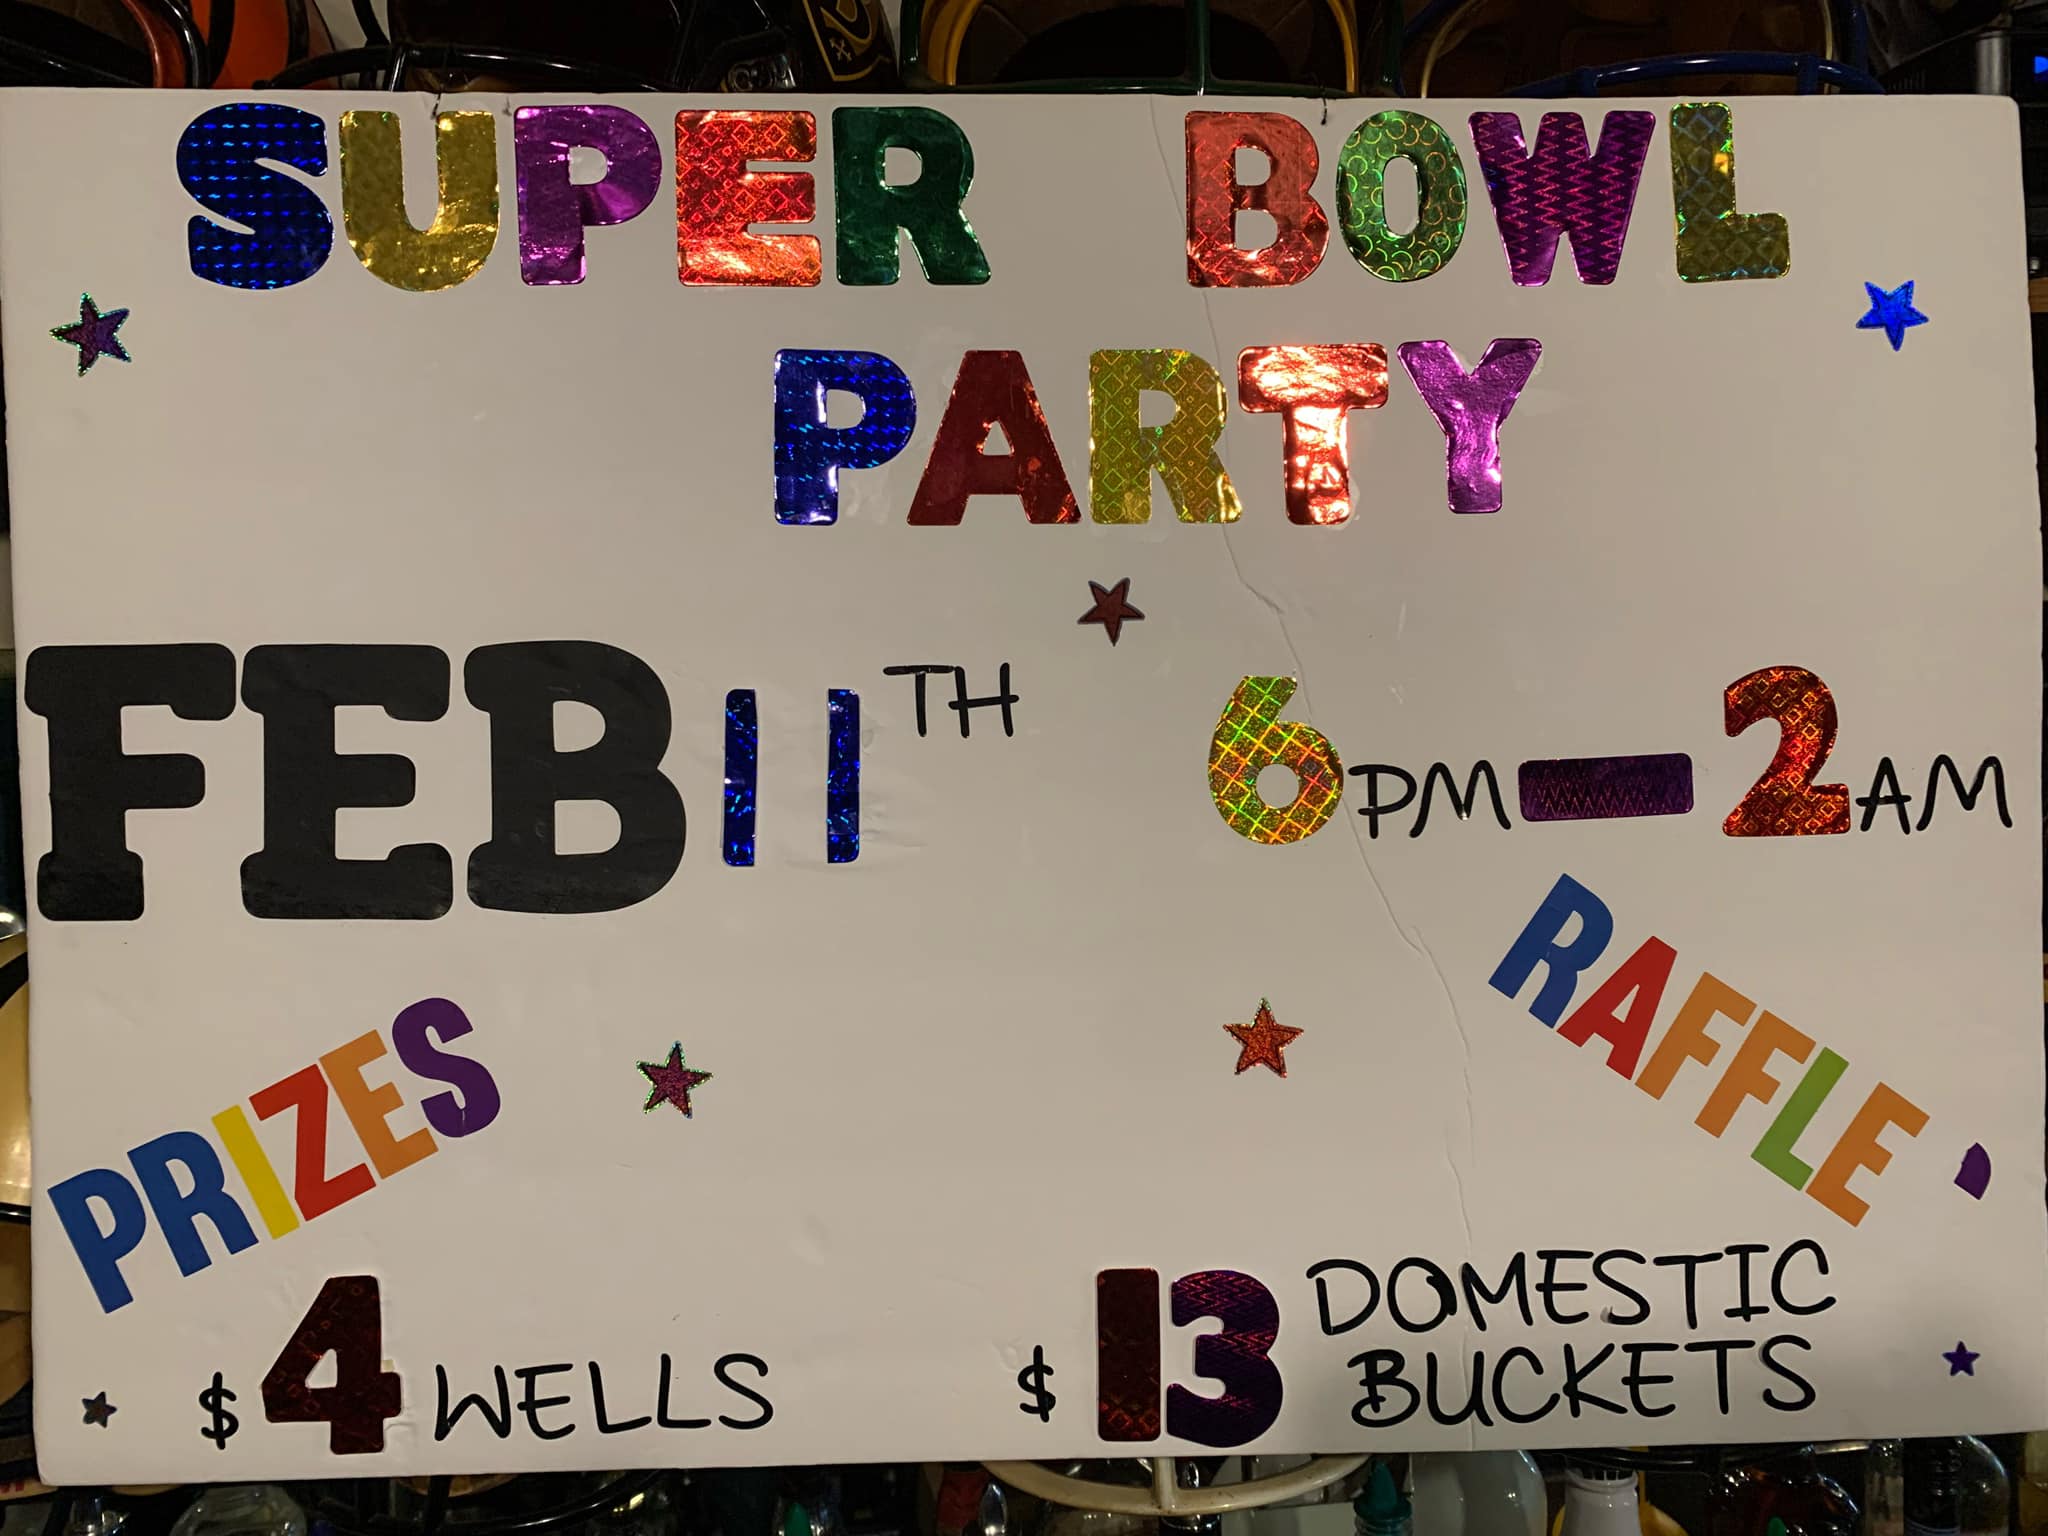 SUPER BOWL
PARTY
FEB 11TH 6PM-2AM
PRIZES
RAFFLE
$4 WELLS
$13 DOMESTIC
BUCKETS